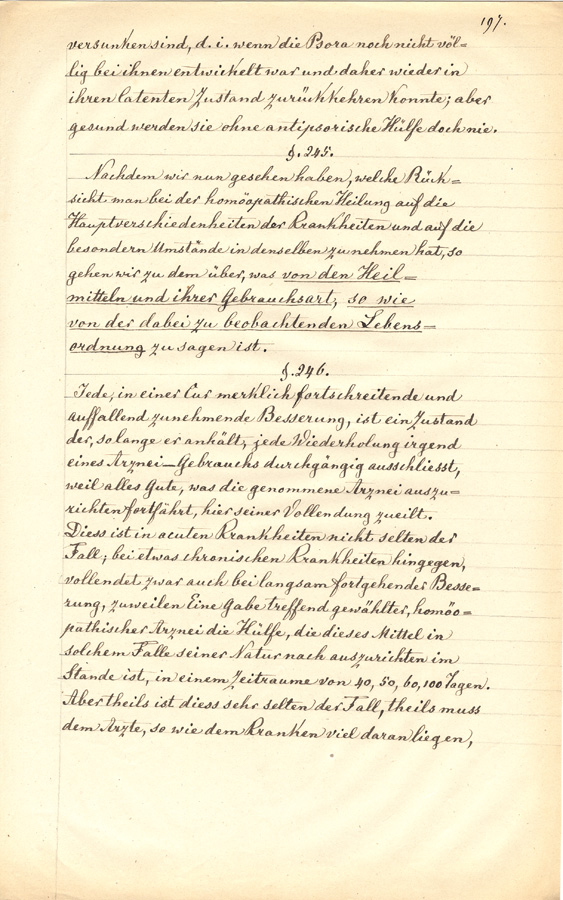 197.
versunken sind, d. i. wenn die Psora noch nicht völ=
lig bei ihnen entwickelt war und daher wieder in
ihren latenten Zustand zurückkehren konnte; aber
gesund werden sie ohne antipsorische Hülfe doch nie.
§. 245.
Nachdem wir nun gesehen haben, welche Rück=
sicht man bei der homöopathischen Heilung auf die
Hauptverschiedenheiten der Krankheiten und auf die
besondern Umstände in denselben zu nehmen hat, so
gehen wir zu dem über, was von den Heil=
mitteln und ihrer Gebrauchsart, so wie
von der dabei zu beobachtenden Lebens=
ordnung zu sagen ist.
§. 246.
Jede, in einer Cur merklich fortschreitende und
auffallend zunehmende Besserung, ist ein Zustand
der, so lange er anhält, jede Wiederholung irgend
eines Arznei-Gebrauchs durchgängig ausschliesst,
weil alles Gute, was die genommene Arznei auszu=
richten fortfährt, hier seiner Vollendung zueilt.
Diess ist in acuten Krankheiten nicht selten der
Fall; bei etwas chronischen Krankheiten hingegen,
vollendet zwar auch bei langsam fortgehender Besse=
rung, zuweilen Eine Gabe treffend gewählter, homöo=
pathischer Arznei die Hülfe, die dieses Mittel in
solchem Falle seiner Natur nach auszurichten im
Stande ist, in einem Zeitraume von 40, 50, 60, 100 Tagen.
Aber theils ist diess sehr selten der Fall, theils muss
dem Arzte, so wie dem Kranken viel daran liegen,